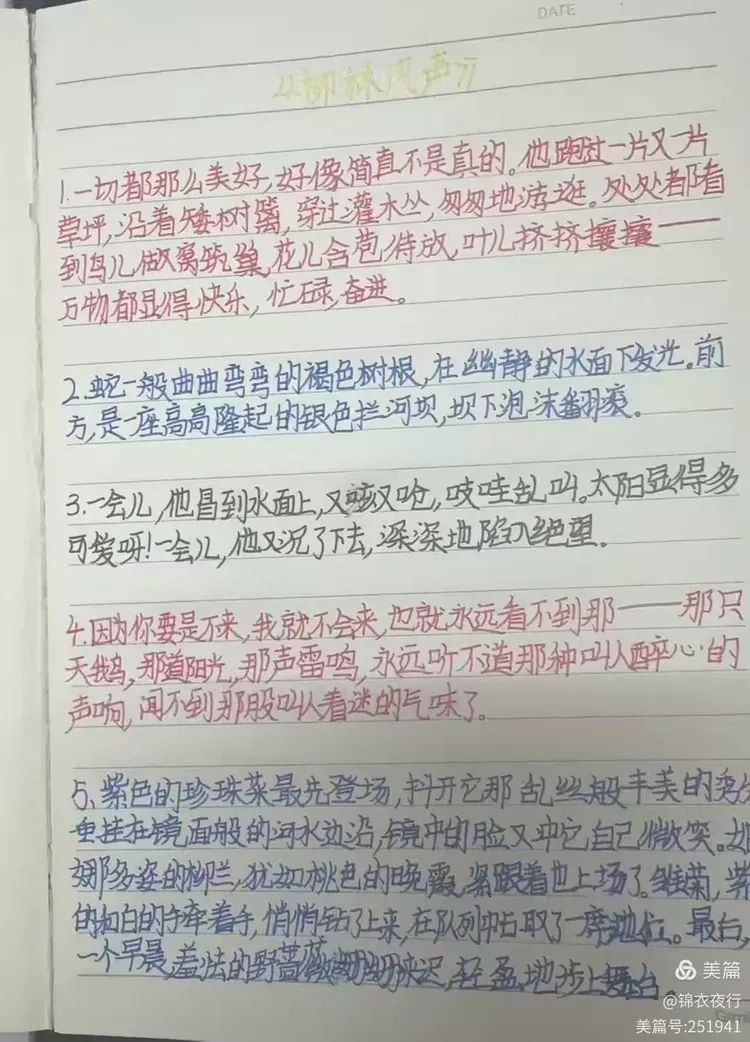 DATE
《柳林风声》
1.一切都那么美好,好像简直不是真的。他跑过一片又一片
草坪,沿着矮树篱,穿过灌木丛,匆匆地游逛。处处都看
到鸟儿做窝筑巢,花儿含苞待放,叶儿挤挤攘攘——
万物都显得快乐,忙碌,奋进。
2.蛇一般曲曲弯弯的褐色树根,在幽静的水面下发光。前
方,是一座高高隆起的银色拦河坝,坝下泡沫翻滚。
3.一会儿,他冒到水面上,又咳又呛,吱哇乱叫。太阳显得多
可爱呀!一会儿,他又沉了下去,深深地陷入绝望。
4.因为你要是不来,我就不会来,也就永远看不到那——那只
天鹅,那道阳光,那声雷鸣,永远听不道那种叫人醉心的
声响,闻不到那股叫人着迷的气味了。
5.紫色的珍珠菜最先登场,抖开它那乱丝般丰美的
垂挂在镜面般的河水边沿,镜中的脸又冲它自己微笑。
娜多姿的柳兰,犹如桃色的晚霞,紧跟着也上场了。雏菊,紫
的和白的手牵着手,悄悄钻了上来,在队列中占取了一席地位。最后,
一个早晨,羞怯的野蔷薇姗姗来迟,轻盈地步上舞台。
美篇
@锦衣夜行
美篇号:251941